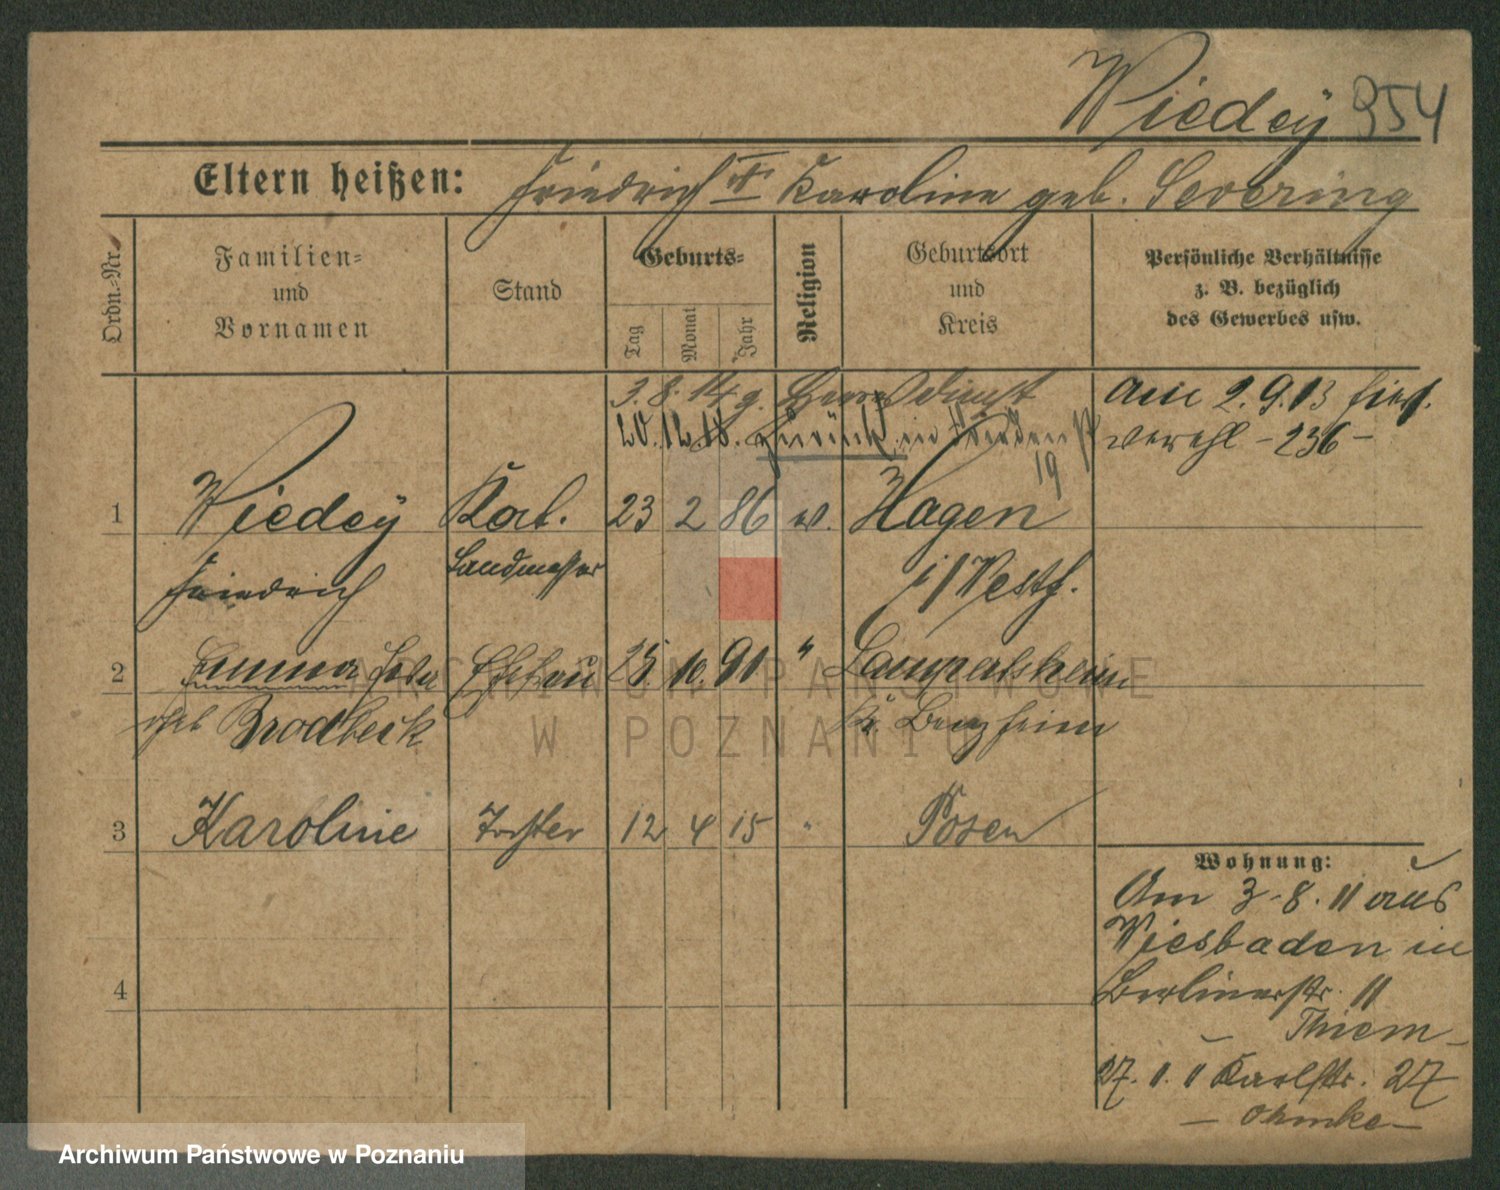 Wiedeÿ 954
Eltern heißen: Friedrich Karoline geb. Severing
Ordn.-Nr.
Familien-
und
Vornamen
Stand
Geburts-
Tag
Monat
Jahr
Religion
Geburtsort
und
Kreis
Persönliche Verhältnisse
z. B. bezüglich
des Gewerbes usw.
3. 8. 14 z. Heeresdienst
20. 12. 18. zurück in
19
Am 2.9.13 hier
verehl - 236 -
1 Wiedeÿ Kat. 23 2 86 ev. Hagen
Friedrich Landmesser i/Westf.
2 Emma Ehefrau 25. 10. 90 "
geb Brodbeck Kr. Bensheim
3 Karoline Tochter 12 4 15 " Posen
4
Wohnung:
Am 3.8.11 aus
Wiesbaden in
Berlinerstr. 11
Thiem -
27. 11. 11 Karlstr. 27
- Ohmke -
ARCHIWUM PAŃSTWOWE
W POZNANIU
Archiwum Państwowe w Poznaniu